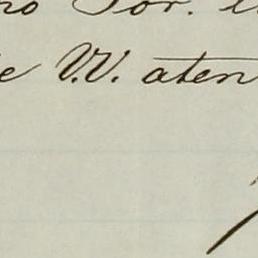 no Sor. 
e V.V. aten